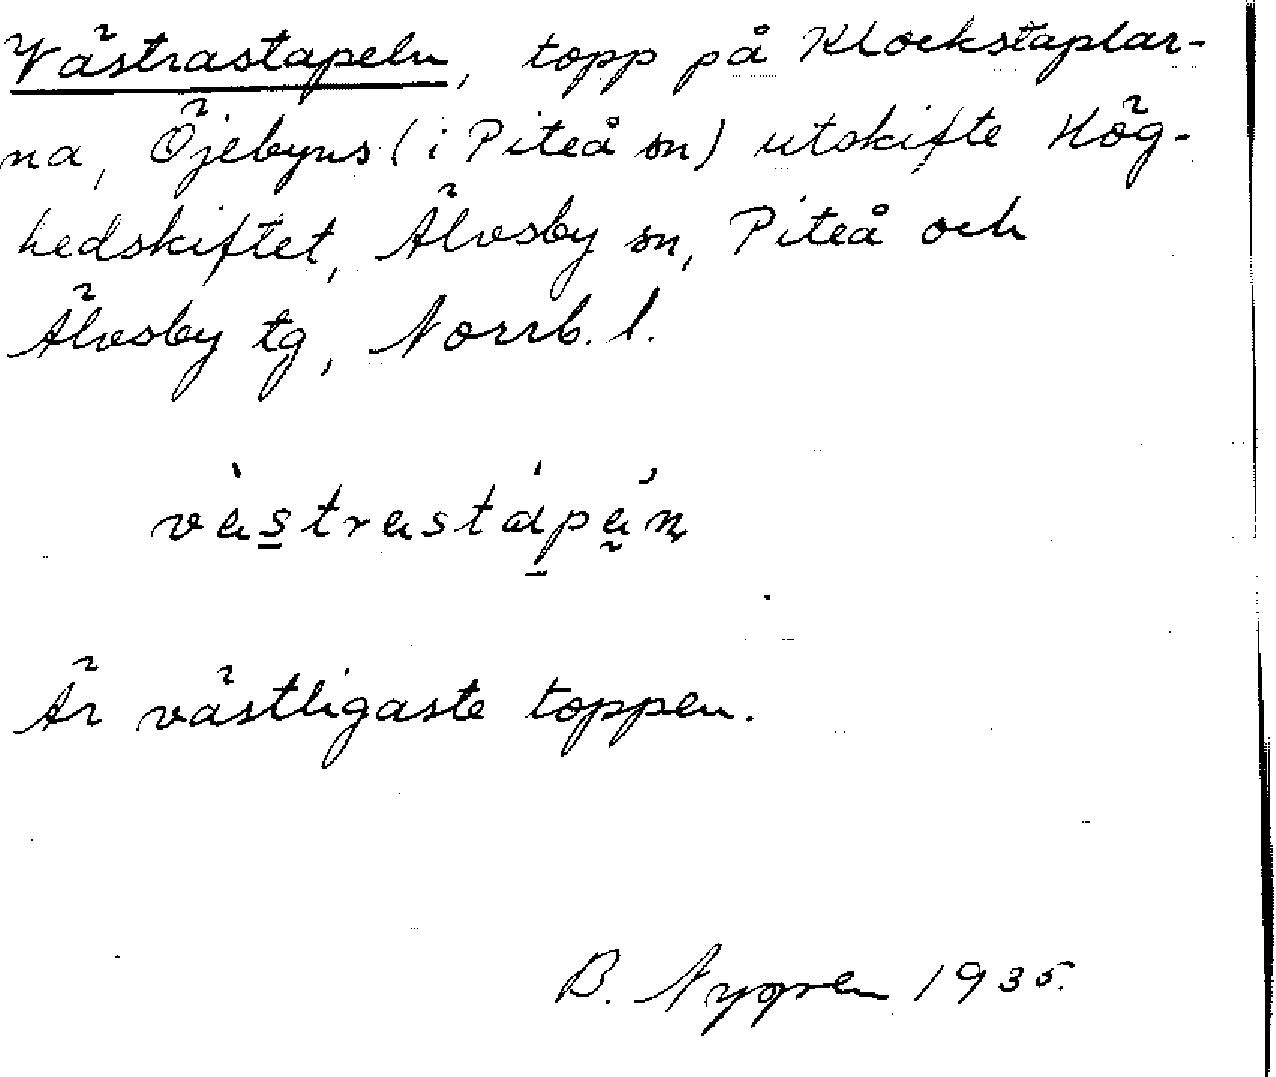 Västrastapeln, topp på Klockstaplar-
na, Öjebyns (i Piteå sn) utskifte Hög-
hedskiftet, Älvsby sn, Piteå och
Älvsby tg, Norrb. l.
västrastápän
Är västligaste toppen.
B. Nygren 1935.